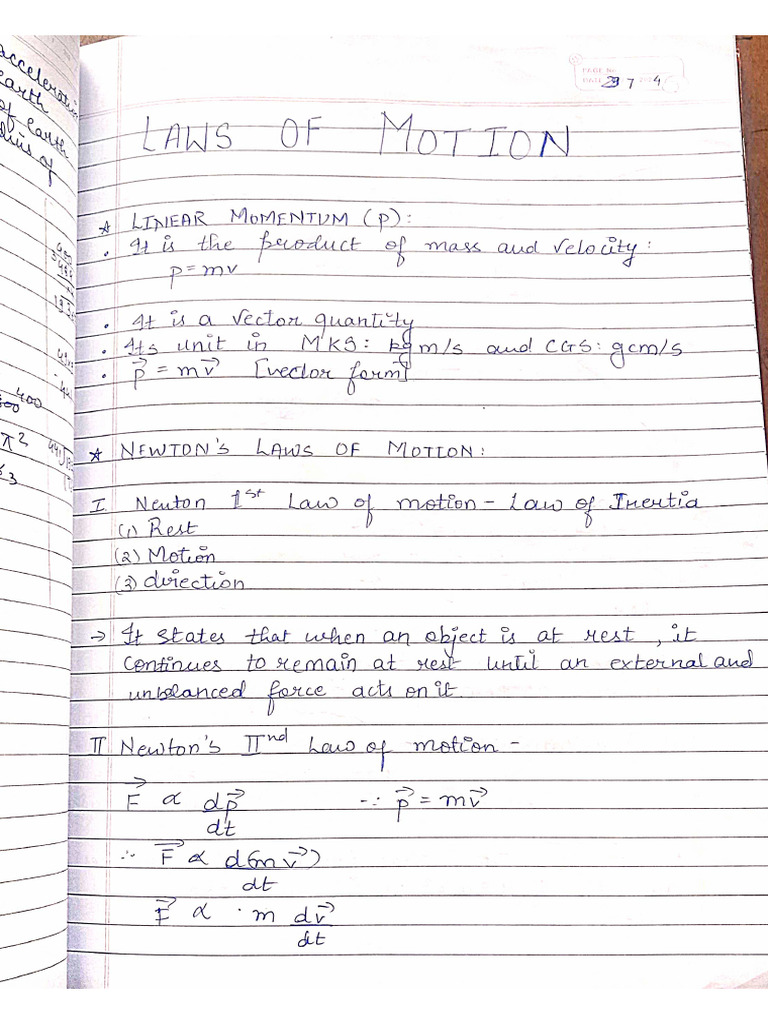 acceleration
earth
of earth
PAGE No.
DATE 29 7 2024
LAWS OF MOTION
☆ LINEAR MOMENTUM (p):
• It is the product of mass and velocity:
p = mv
• It is a vector quantity
• Its unit in MKS: kgm/s and CGS: gcm/s
• p⃗ = mv⃗ [vector form]
☆ NEWTON'S LAWS OF MOTION:
I Newton 1st Law of motion - Law of Inertia
(1) Rest
(2) Motion
(3) direction
→ It states that when an object is at rest, it
continues to remain at rest until an external and
unblanced force acts on it.
II Newton's IInd Law of motion -
F⃗ ∝ dp⃗/dt ∵ p⃗ = mv⃗
∴ F⃗ ∝ d(mv⃗)/dt
F⃗ ∝ m dv⃗/dt
400
π2